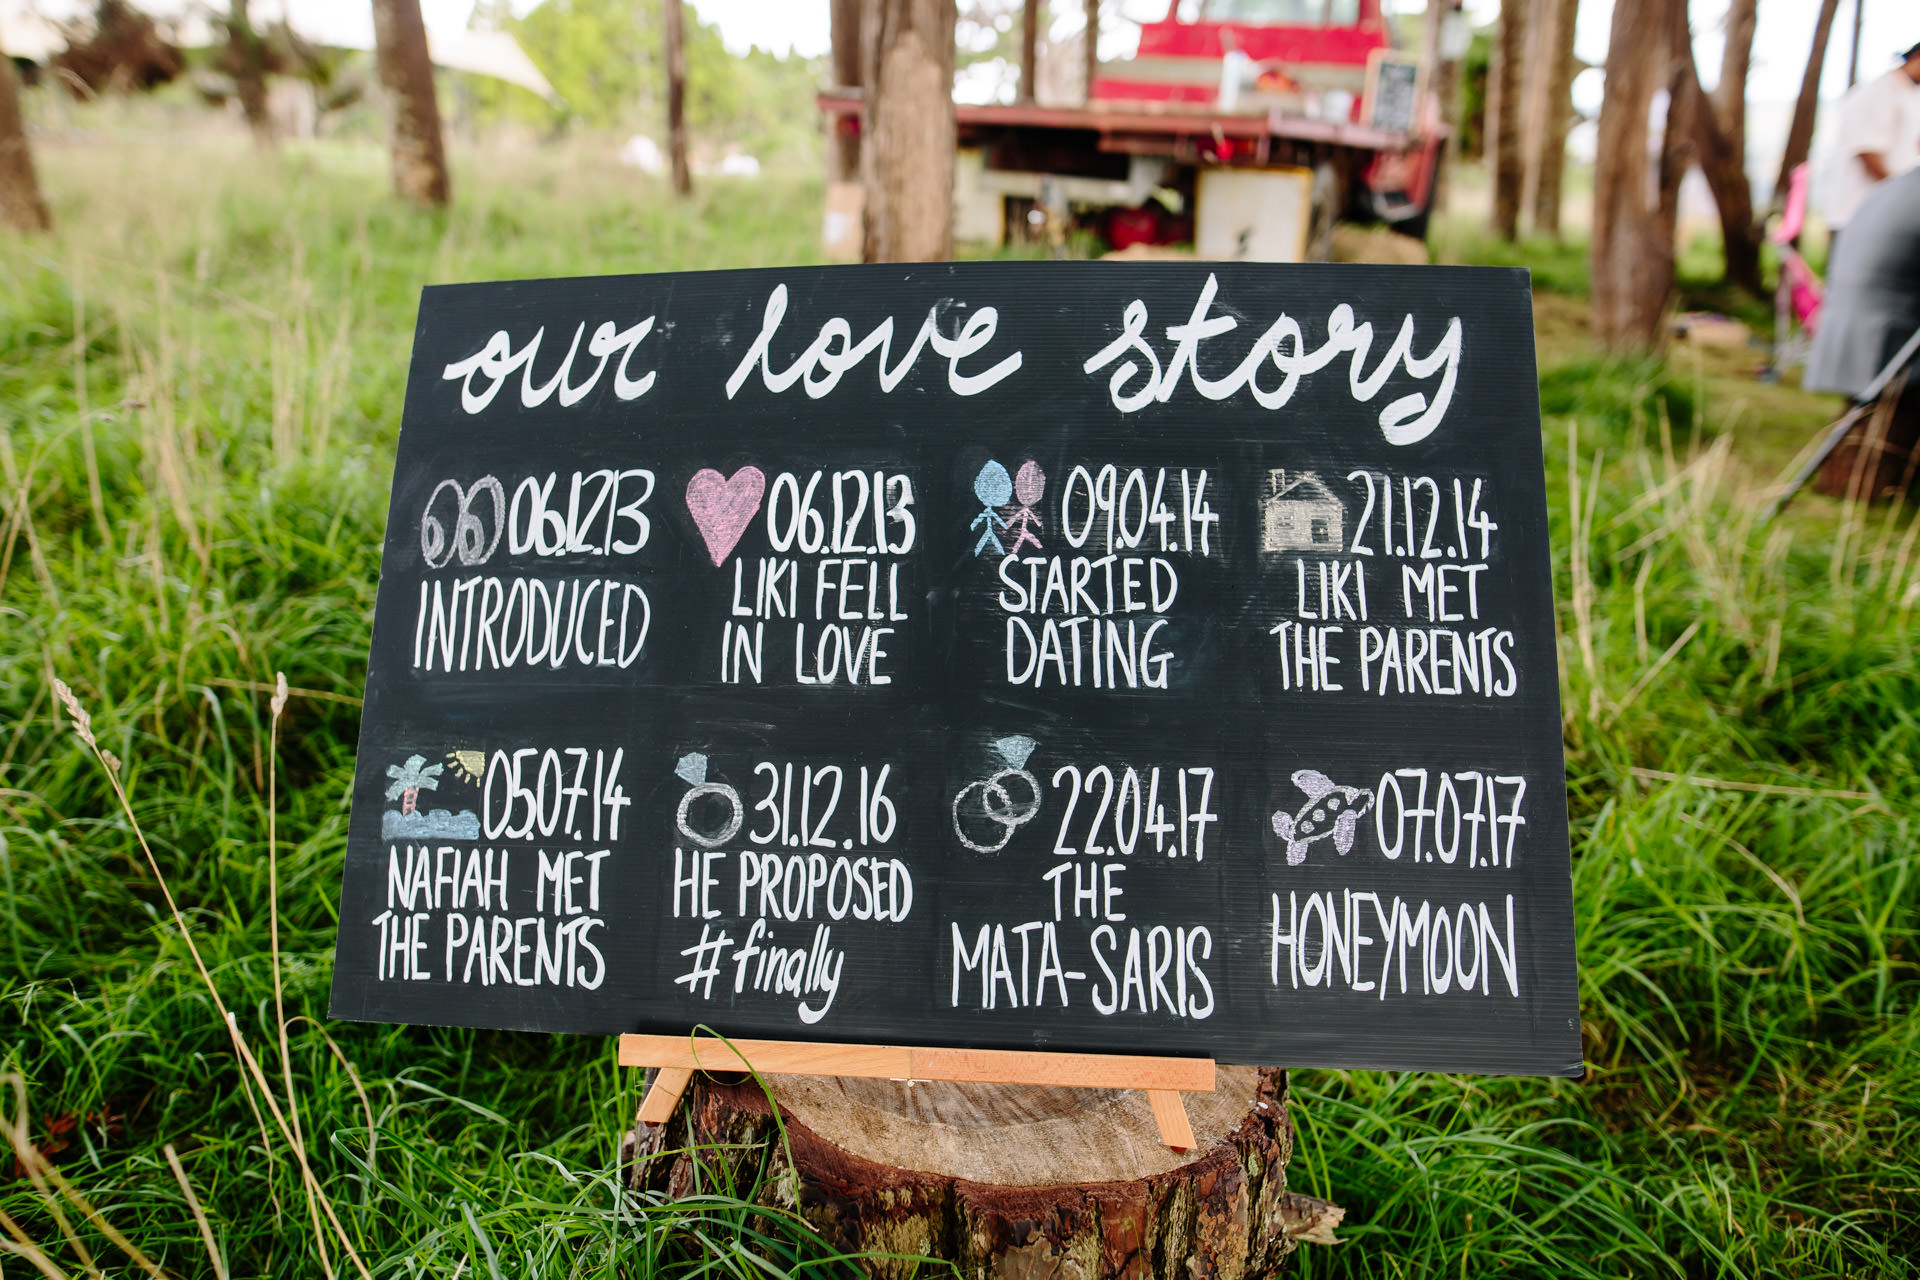 our love story
06.12.13
INTRODUCED
06.12.13
LIKI FELL
IN LOVE
09.04.14
STARTED
DATING
21.12.14
LIKI MET
THE PARENTS
05.07.14
NAFIAH MET
THE PARENTS
31.12.16
HE PROPOSED
#finally
22.04.17
THE
MATA-SARIS
07.07.17
HONEYMOON